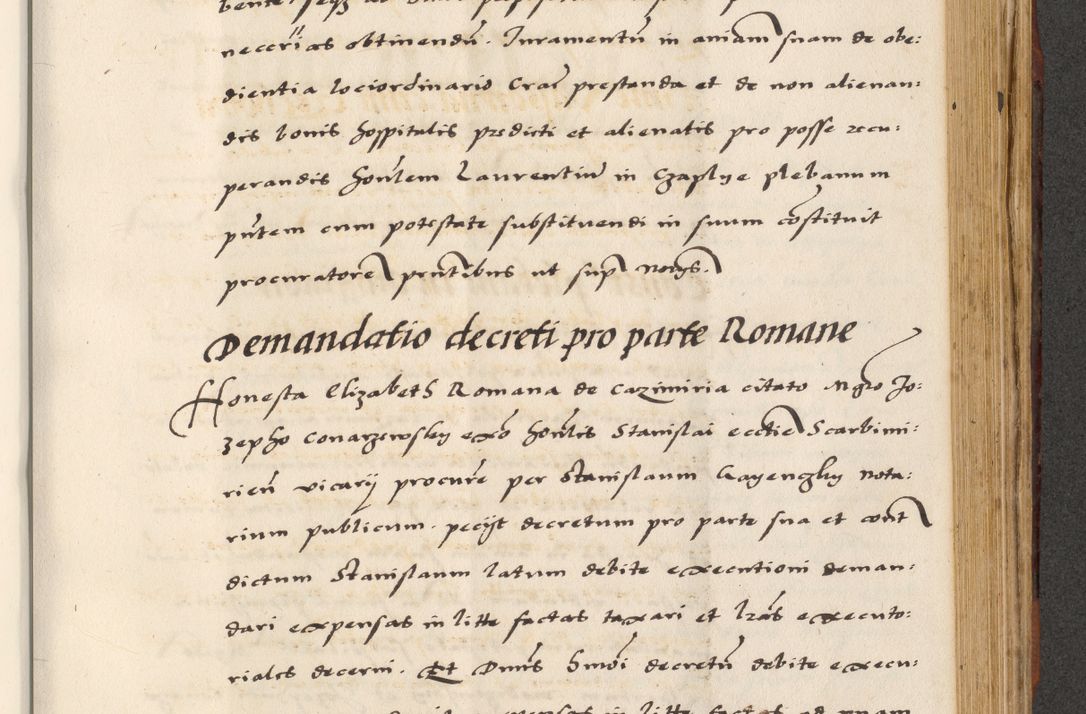 necerias obtinendũ. Iuramentũ in aniam suam de obe:
dientia lociordinario Crac̃ prestanda et de non alienan:
dis bonis hospitalis predicti et alienatis pro posse recu:
perandis honlem Laurentiũ in Czaplye plebanum
pñtem cum potestate substituendi in suum cõstituit
procuratorẽ pñtibus ut sup̃
Demandatio decreti pro parte Romane
Honesta Elizabeth Romana de Cazimiria citato Mgro Jo:
zepho Conarzewsky exõ honlis Stanislai ecctie Scarbimi:
rieñ vicarij procurẽ per Stanislaum Gayenczky nota:
rium publicum. pecijt decretum pro parte sua et cont
dictum Stanislaum latum debite executioni deman:
dari expensas in litte factas taxari et lrãs executo:
riales decerni. Et Dnũs hmõi decretũ debite execu: